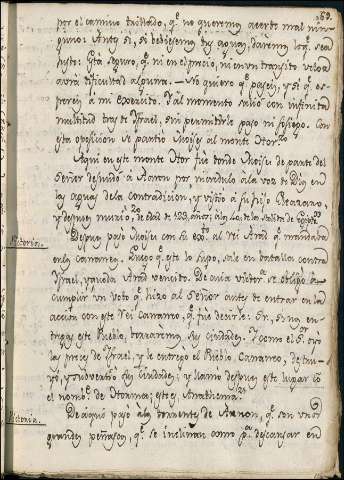 por el camino trillado, q.e no queremos acerte mal nin-
guno. Antes si, si bebiesemos tus aguas, daremos lo q.e sea
justo: Está seguro, q.e ni en el precio, ni en un transito veloz
avrá dificultad alguna. — No quiero q.e paseis, y si q.e es-
pereis a mi Exercito. Y al momento salió con infinita
multitud tras de Israel, sin permitirle paso ni
esta oposicion se partió Moises al monte Hor.
Aqui en este monte Hor fue donde Moises de parte del
Señor desnudó a Aaron por incredulo a la voz de Dios en
las aguas de la contradicion, y vistió a su fijo Eleazaro,
y despues murió de edad de 123. años; a los 40. de la salida de
Despues pasó Moises con su al rei Arad q.e mandaba
en los Cananeos. Luego q.e este lo supo, sale en batalla contra
Israel, y queda Arad vencido. De aula victoria se obligó a
cumplir un voto q.e hizo al Señor antes de entrar en la
accion con este Rei Cananeo, q.e fue decirle: Sr, si tu en-
tregas este Pueblo, borraremos sus ciudades. Y como el Sr. oyo
las preces de Israel, y le entrego el Pueblo Cananeo, des-
yó, y sus ciudades; y llamo despues este lugar co
el nom.e de Horama; esto es, Anathema.
De aqui pasó a los torrentes de Arnon, q.e son unos
grandes peñascos, q.e se inclinan como p.a descansar en
Victoria.
Victoria.